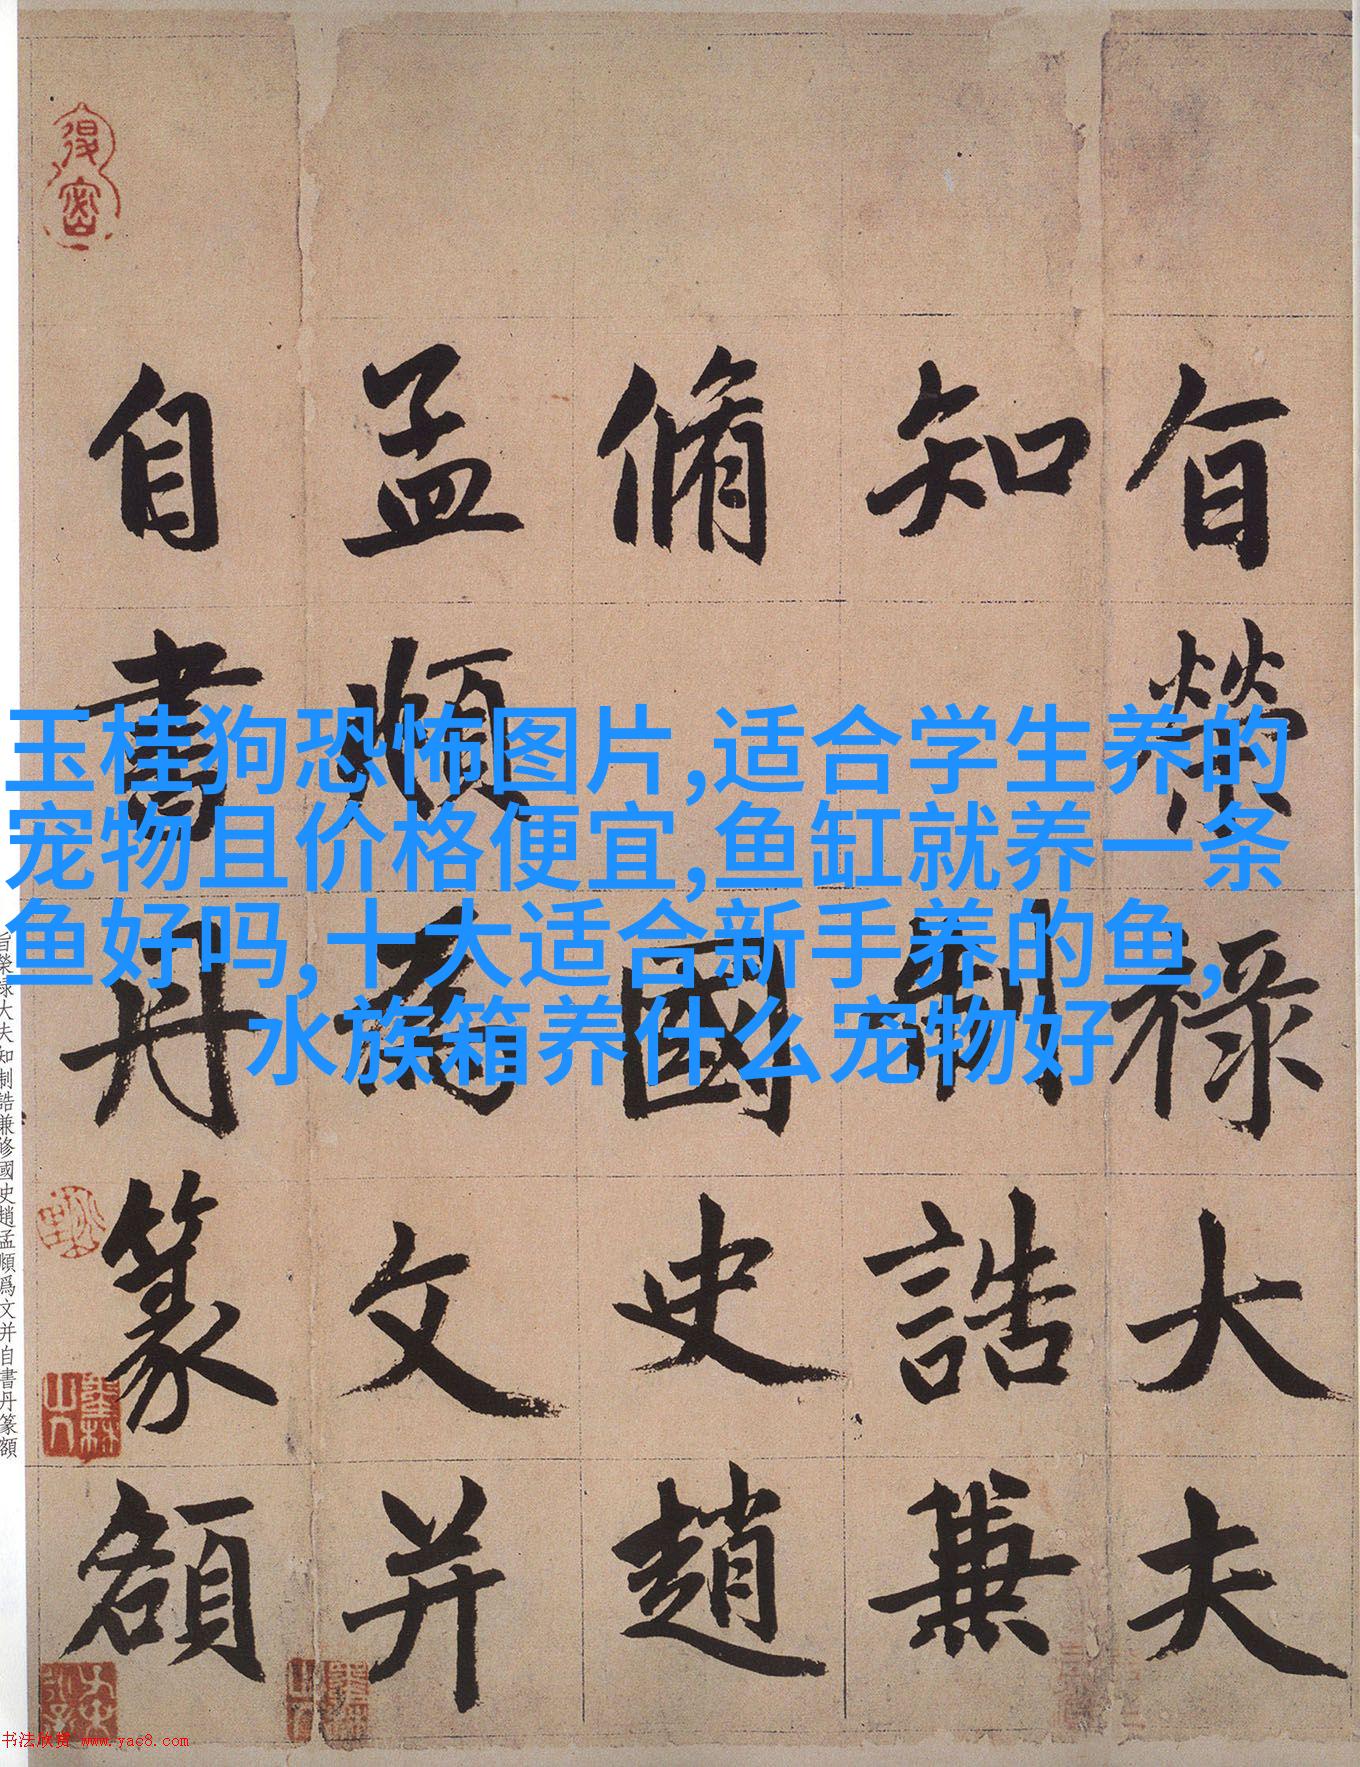 旨榮祿大夫
知制誥兼
脩國史趙
孟頫為文并
自書丹篆額
玉桂狗恐怖图片,适合学生养的
宠物且价格便宜,鱼缸就养一条
鱼好吗,十大适合新手养的鱼,
水族箱养什么宠物好
旨榮祿大夫知制誥兼修國史趙孟頫爲文并自書丹篆額
书法欣赏 www.yac8.com